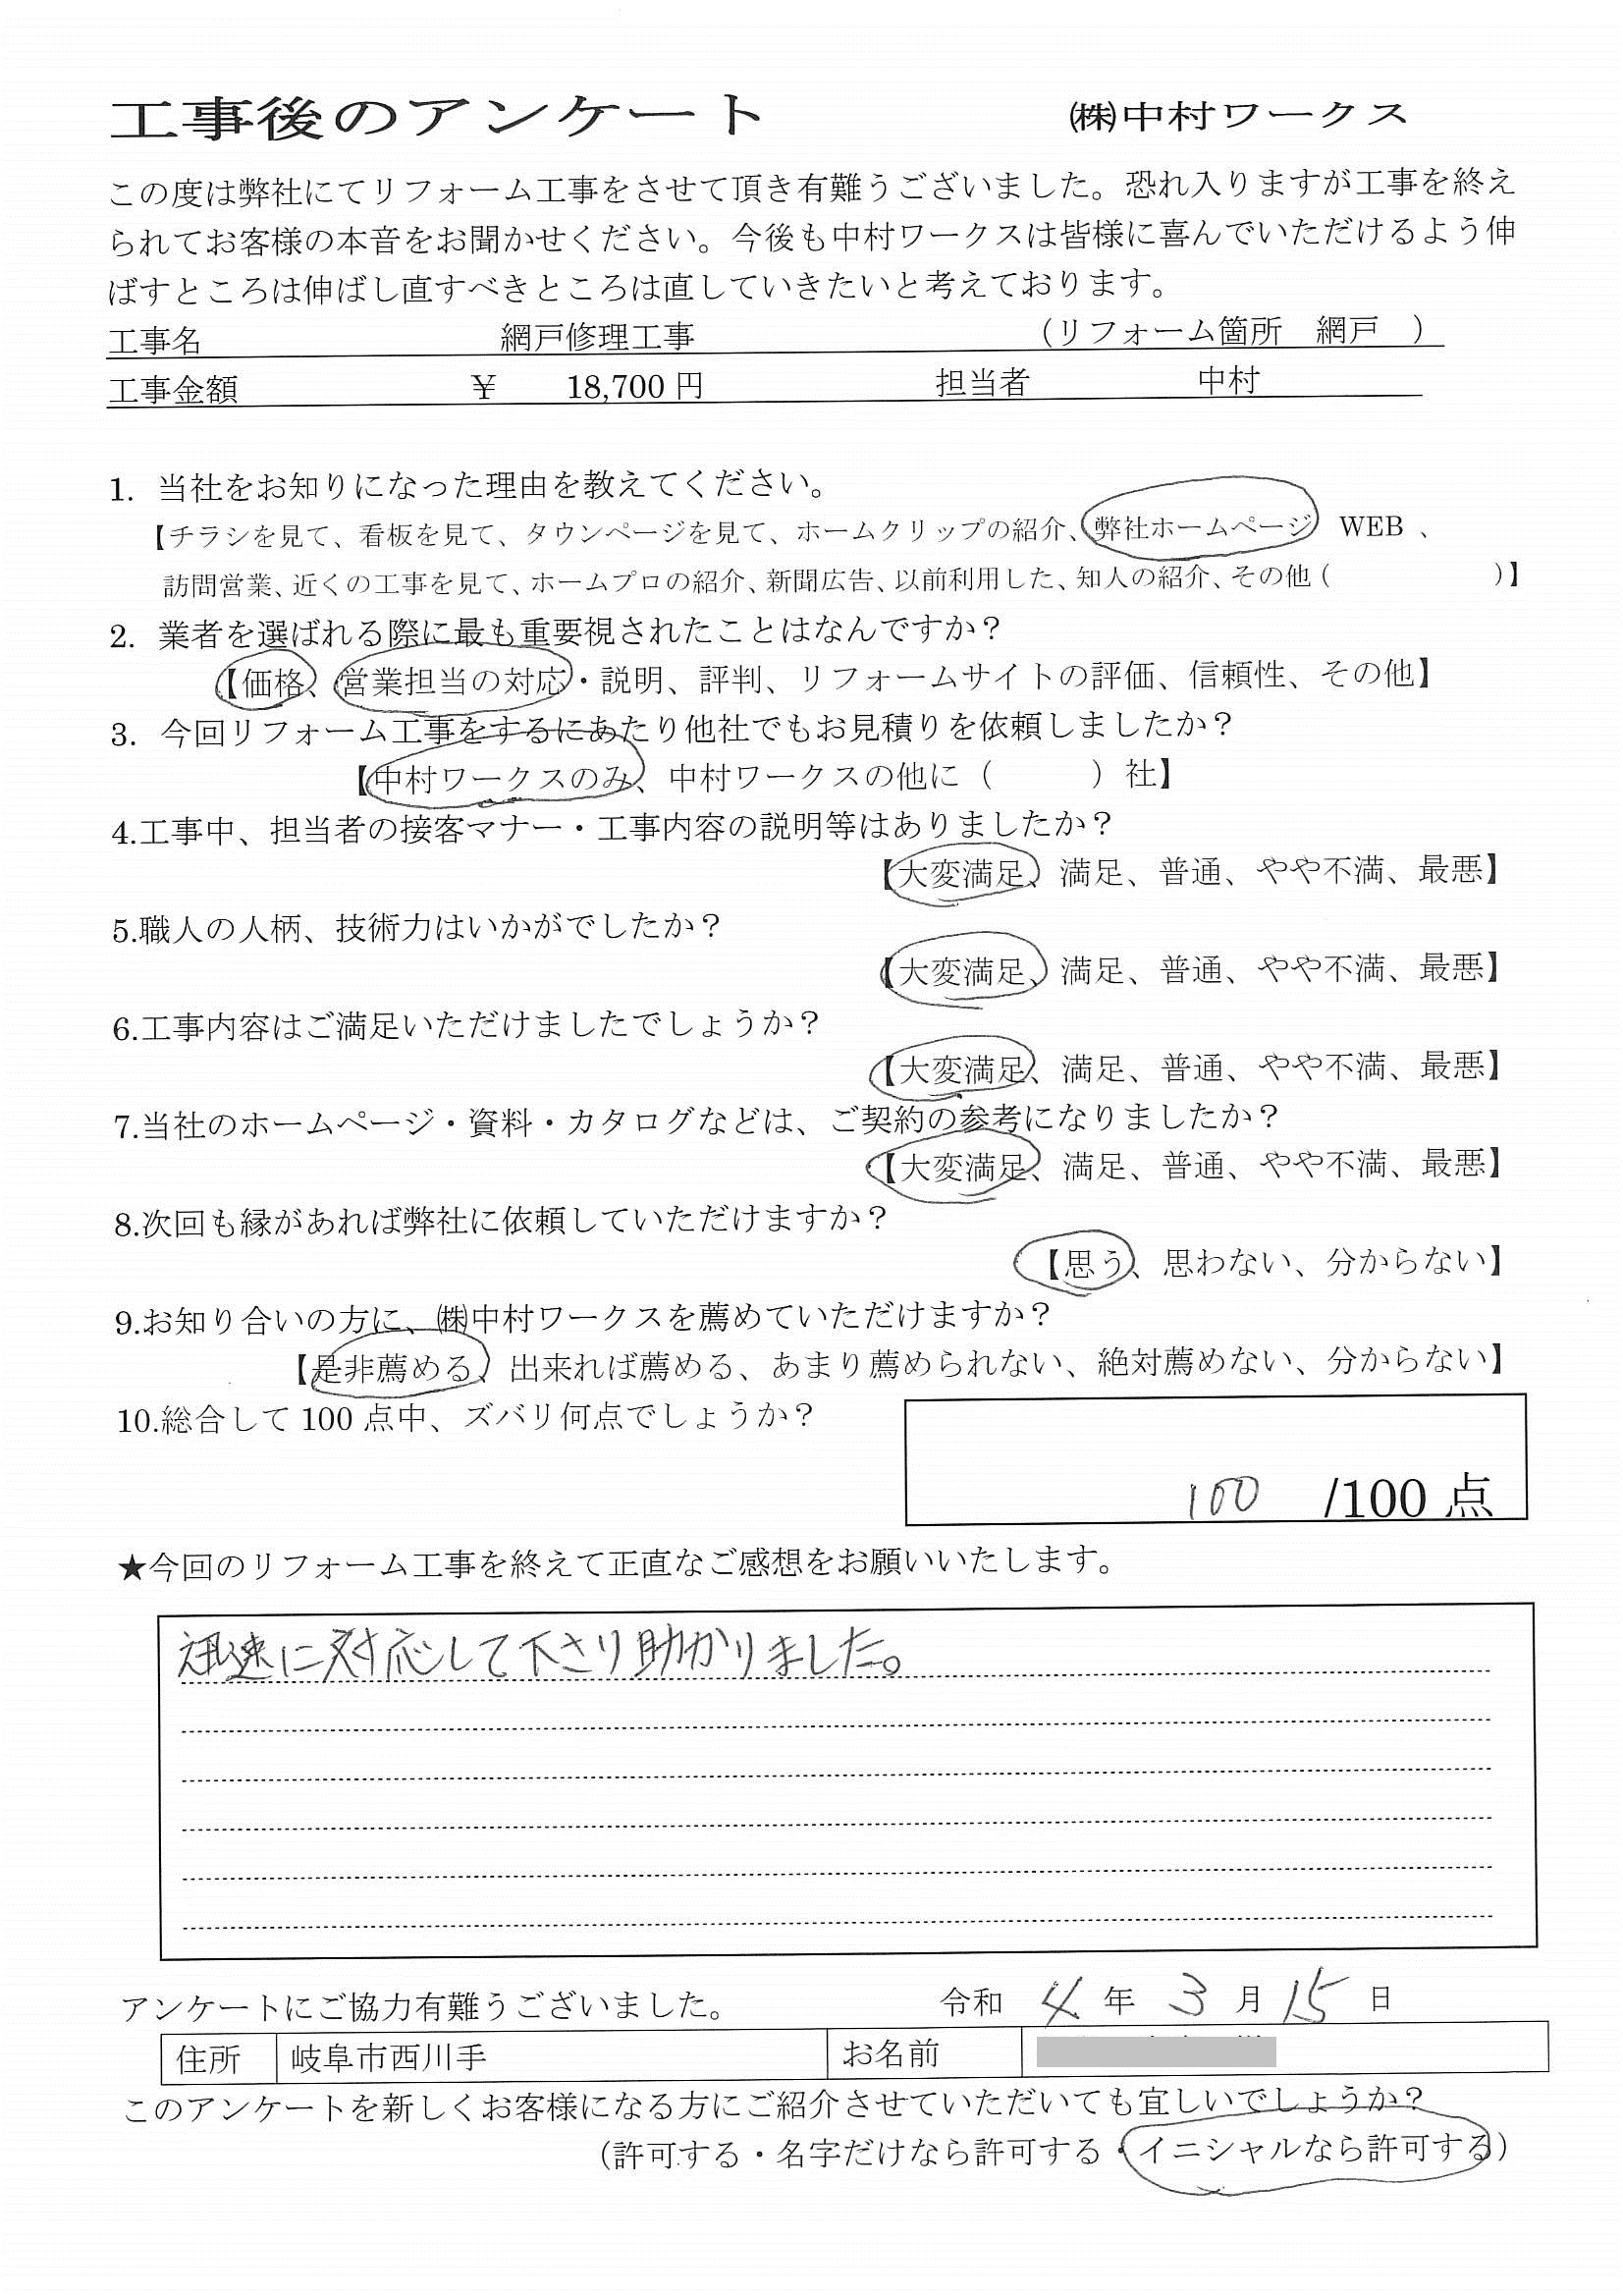 工事後のアンケート ㈱中村ワークス
この度は弊社にてリフォーム工事をさせて頂き有難うございました。恐れ入りますが工事を終え
られてお客様の本音をお聞かせください。今後も中村ワークスは皆様に喜んでいただけるよう伸
ばすところは伸ばし直すべきところは直していきたいと考えております。
工事名 網戸修理工事 （リフォーム箇所 網戸 ）
工事金額 ￥ 18,700 円 担当者 中村
1. 当社をお知りになった理由を教えてください。
【チラシを見て、看板を見て、タウンページを見て、ホームクリップの紹介、弊社ホームページ WEB 、
訪問営業、近くの工事を見て、ホームプロの紹介、新聞広告、以前利用した、知人の紹介、その他（ ）】
2. 業者を選ばれる際に最も重要視されたことはなんですか？
【価格、営業担当の対応・説明、評判、リフォームサイトの評価、信頼性、その他】
3. 今回リフォーム工事をするにあたり他社でもお見積りを依頼しましたか？
【中村ワークスのみ、中村ワークスの他に（ ）社】
4.工事中、担当者の接客マナー・工事内容の説明等はありましたか？
【大変満足、満足、普通、やや不満、最悪】
5.職人の人柄、技術力はいかがでしたか？
【大変満足、満足、普通、やや不満、最悪】
6.工事内容はご満足いただけましたでしょうか？
【大変満足、満足、普通、やや不満、最悪】
7.当社のホームページ・資料・カタログなどは、ご契約の参考になりましたか？
【大変満足、満足、普通、やや不満、最悪】
8.次回も縁があれば弊社に依頼していただけますか？
【思う、思わない、分からない】
9.お知り合いの方に、㈱中村ワークスを薦めていただけますか？
【是非薦める、出来れば薦める、あまり薦められない、絶対薦めない、分からない】
10.総合して 100 点中、ズバリ何点でしょうか？
100 /100 点
★今回のリフォーム工事を終えて正直なご感想をお願いいたします。
迅速に対応して下さり助かりました。
アンケートにご協力有難うございました。 令和 4 年 3 月 15 日
住所 岐阜市西川手 お名前
このアンケートを新しくお客様になる方にご紹介させていただいても宜しいでしょうか？
（許可する・名字だけなら許可する・イニシャルなら許可する）